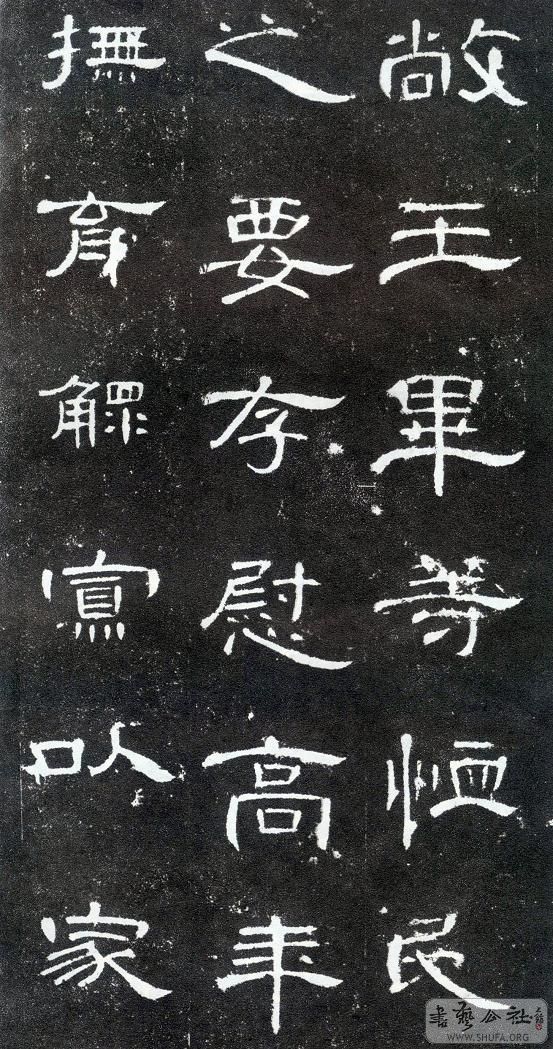 敞王畢等恤民
之要存慰高年
撫育鰥寡以家
書藝公社
WWW.SHUFA.ORG